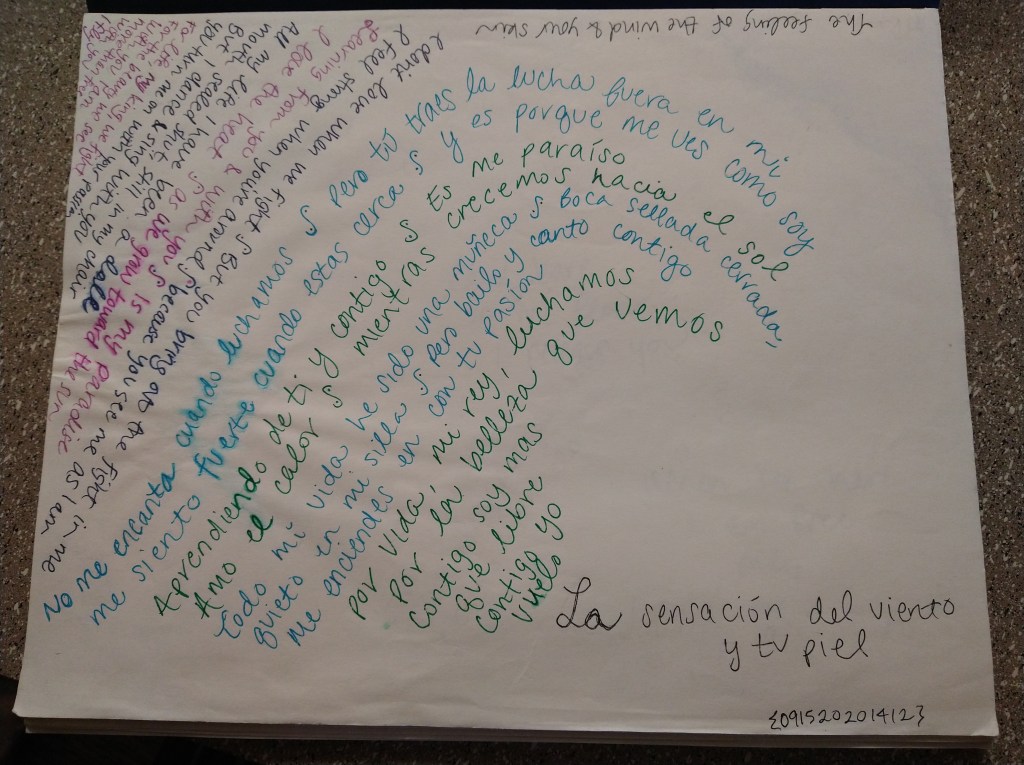 The feeling of the wind & your skin
I don't love when we fight § But you bring out the fight in me
I feel strong when you're around § because you see me as I am
Learning from you & with you § Is my paradise
I love the heat § as we grow toward the sun
All my life I have been a dolle
mouth sealed shut, still in my chair
But I dance & sing with you
you turn me on with your passion
For life my king, we fight
For the beauty we see
No me encanta cuando luchamos § pero tú traes la lucha fuera en mi
me siento fuerte cuando estas cerca § y es porque me ves como soy
Aprendiendo de ti y contigo § Es me paraíso
Amo el calor § mientras crecemos hacia el sol
Todo mi vida he sido una muñeca § boca sellada cerrada,
quieto en mi silla § pero bailo y canto contigo
me enciendes en con tu pasión
por vida, mi rey, luchamos
por la belleza que vemos
contigo soy mas
que libre
contigo yo
vuelo
La sensación del viento
y tu piel
{091520201412}